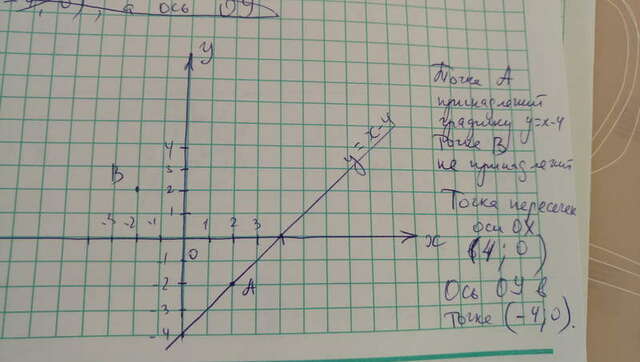 а ось ОУ
y
Точка А
принадлежит
графику y=x-4
Точка В
не принадлежит
y = x-4
4
3
В
2
1
Точка пересечен
оси ОХ
(4; 0)
-3 -2 -1 0 1 2 3
x
-1
-2
А
-3
-4
Ось ОУ в
точке (-4; 0).